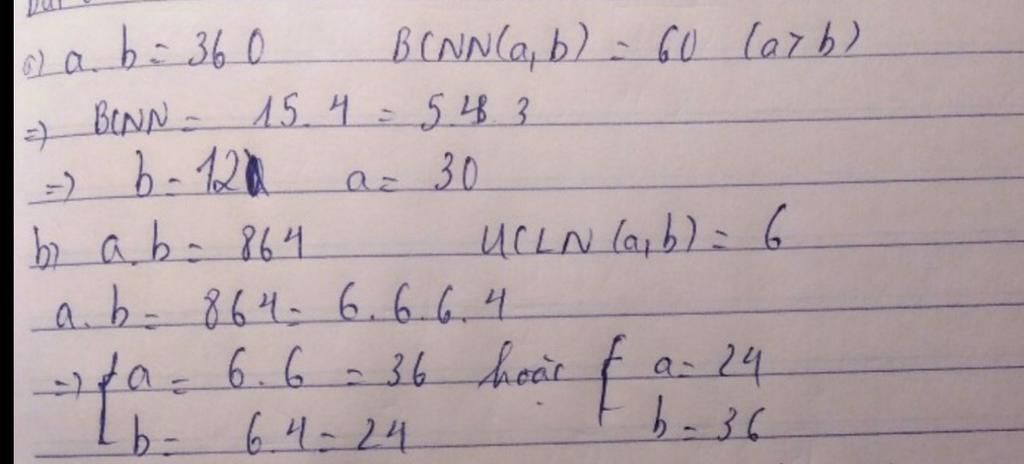 a) a. b = 360 BCNN(a,b) = 60 (a>b)
=) BCNN = 15. 4 = 5.4. 3
=) b = 12 a = 30
b) a.b = 864 UCLN(a,b) = 6
a. b = 864 = 6. 6. 6. 4
=) { a = 6. 6 = 36 hoặc { a = 24
b = 6.4 = 24 b = 36